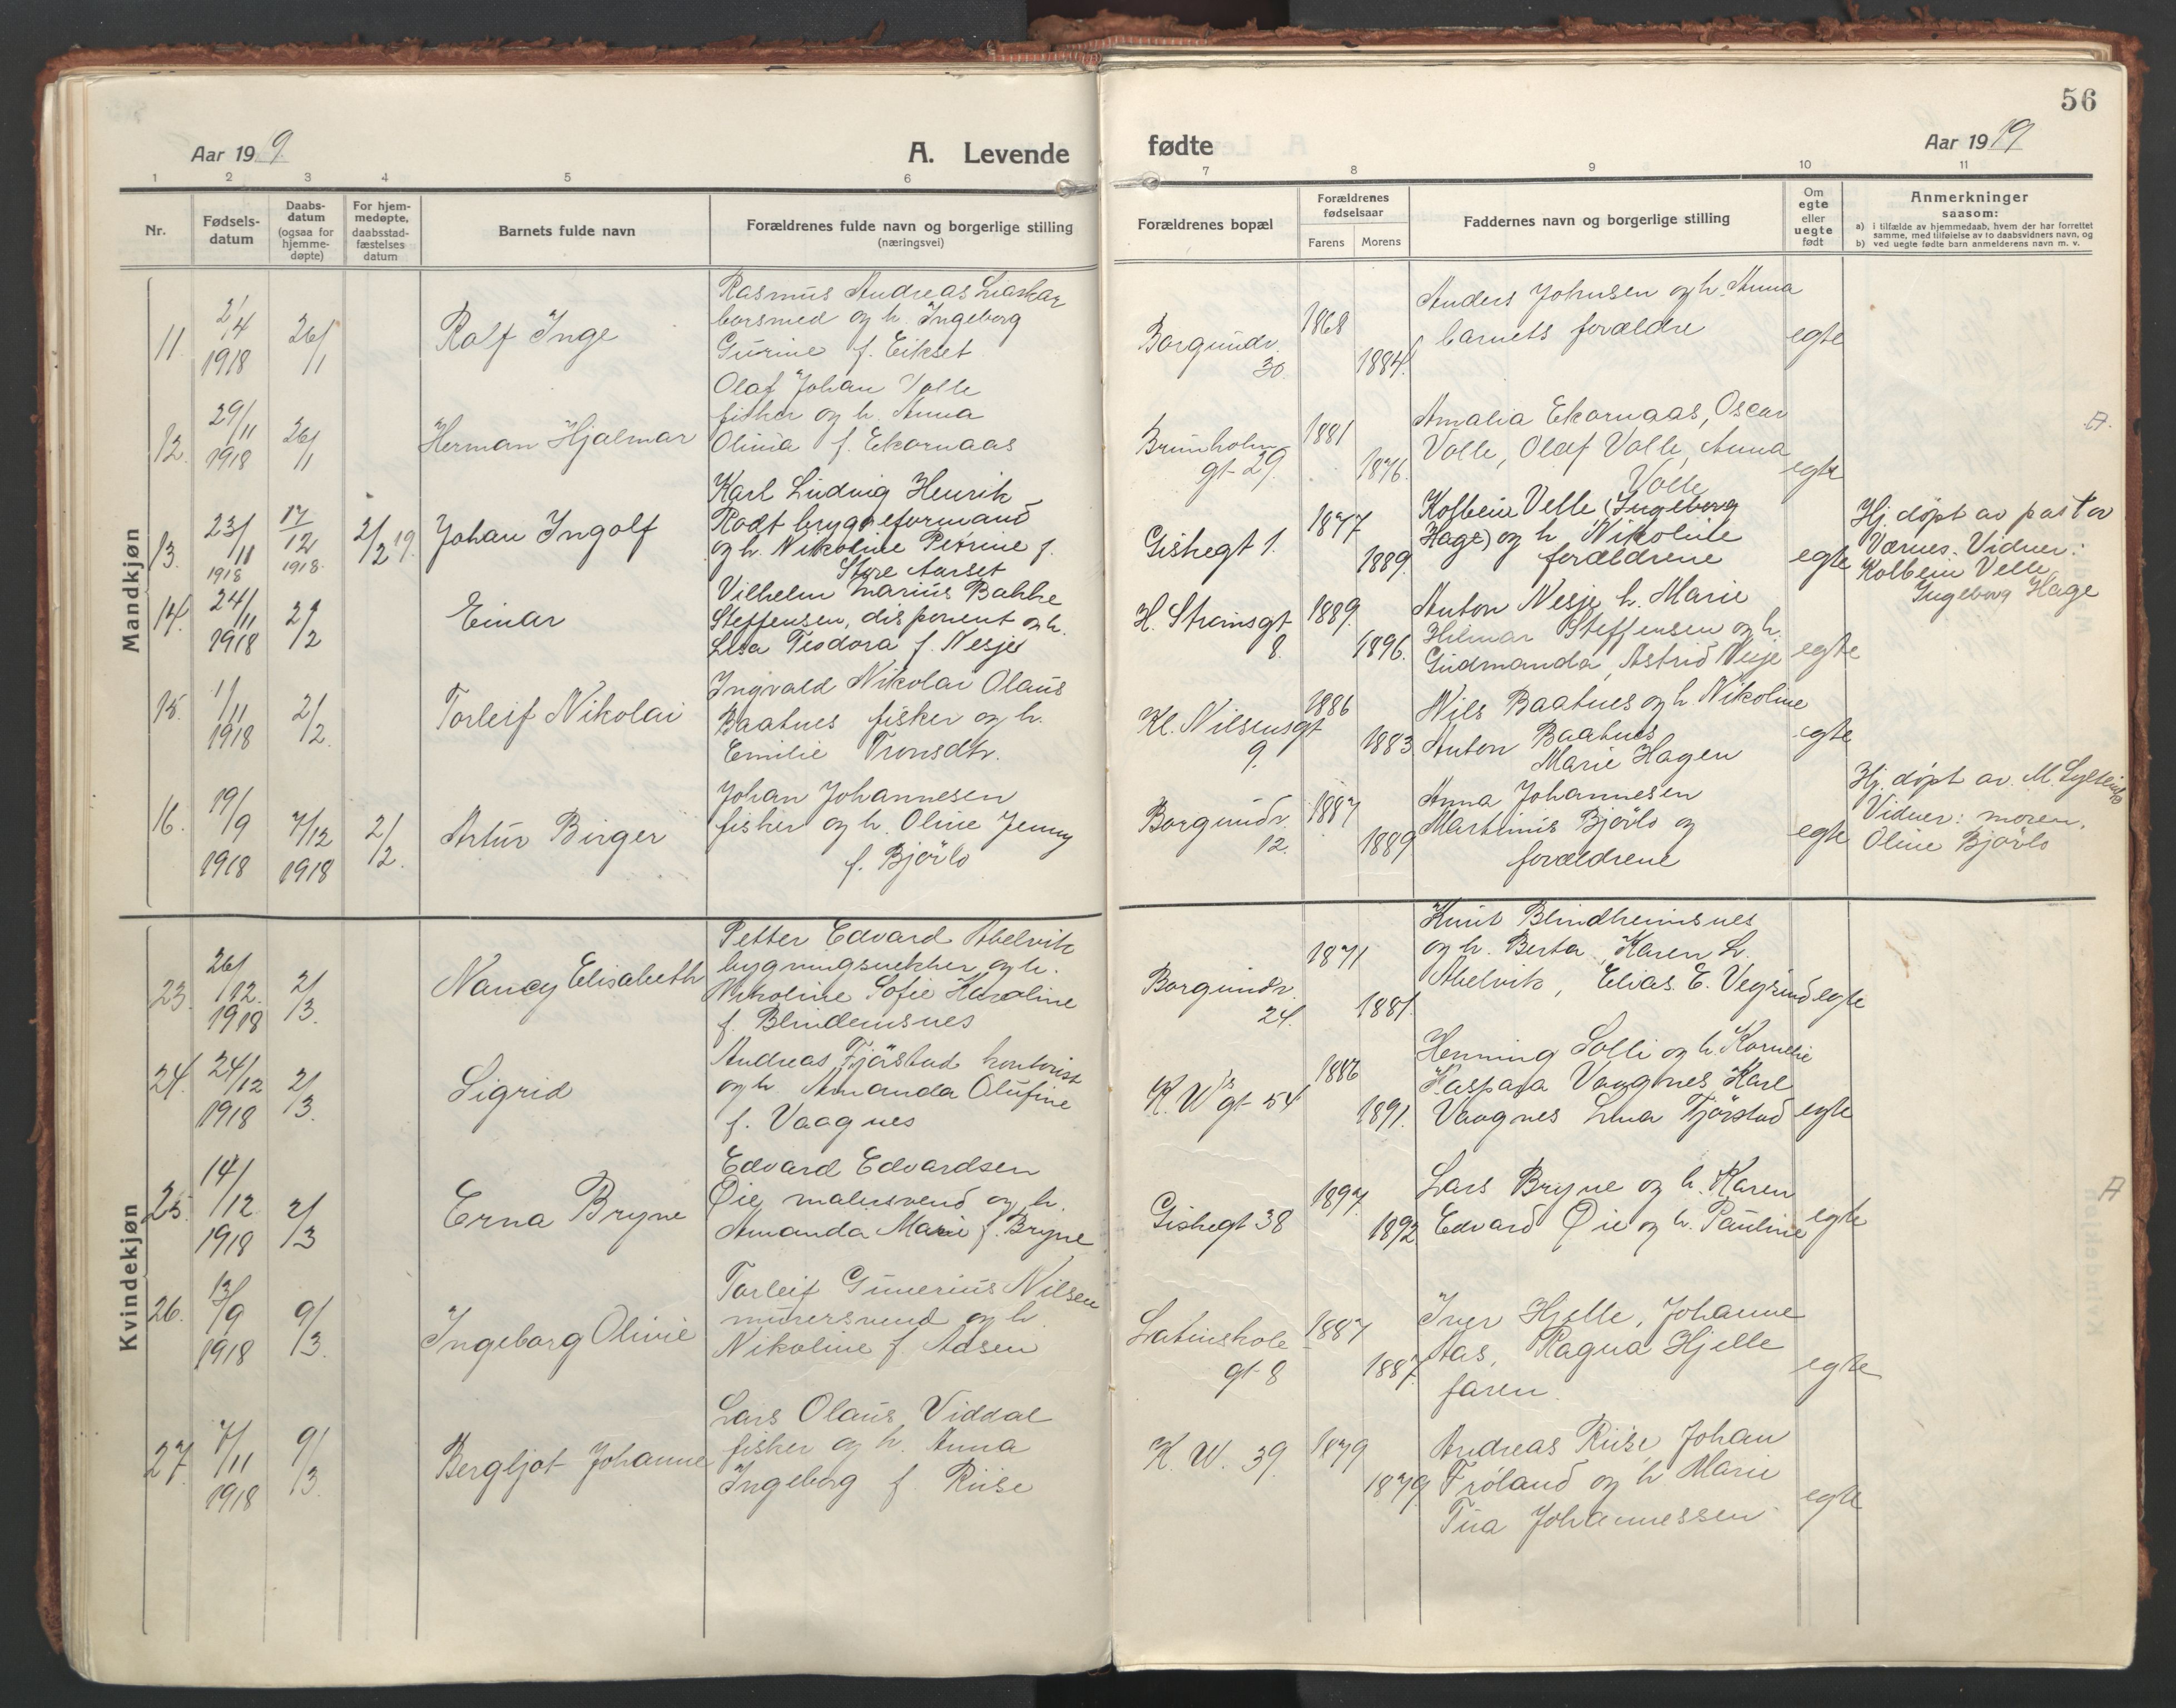 56
Aar 19 9.
A. Levende
fødte
Aar 1919
1 2 3 4 5 6
7 8 9 10 11
Nr.
Fødsels-
datum
Daabs-
datum
(ogsaa for
hjemme-
døpte)
For hjem-
medøpte,
daabsstad-
fæstelses
datum
Barnets fulde navn
Forældrenes fulde navn og borgerlige stilling
(næringsvei)
Forældrenes bopæl
Forældrenes
fødselsaar
Farens Morens
Faddernes navn og borgerlige stilling
Om
egte
eller
uegte
født
Anmerkninger
saasom:
a) i tilfælde av hjemmedaab, hvem der har forrettet
samme, med tilføielse av to daabsvidners navn, og
b) ved uegte fødte barn anmelderens navn m. v.
Mandkjøn
11. 2/4 1918 26/1 Ralf Inge
Rasmus Andreas
og h. Ingeborg
Gurine f. Eikset
Borgundv. 30. 1868 1884.
Anders Johnsen og h. Anna
barnets forældre
egte
12. 29/11 1918 26/1 Herman Hjalmar
Olaf Johan Volle
fisker og h. Anna
Olina f. Ekornaas
Brunholm
gt 29. 1881 1876.
Amalia Ekornaas, Oscar
Volle, Olaf Volle, Anna
Volle
egte
A.
13. 23/11 1918 17/12 1918. 2/2 19. Johan Ingolf
Karl Ludvig Henrik
Rødt bryggeformand
og h. Nikoline Petrine f.
Støre Aarset
Giskegt 1. 1877 1889.
Kolbein Velle (Ingeborg
Hage) og h. Nikoline
forældrene
egte
Hj. døpt av pastor
Værnes. Vidner:
Kolbein Velle
Ingeborg Hage
14. 24/11 1918 2/2 Einar
Vilhelm Marius Bakke
Steffensen, disponent og h.
Lisa Teodora f. Nesje
H. Strømsgt
8. 1889. 1896.
Anton Nesje h. Marie
Hilmar Steffensen og h.
Gudmanda, Astrid Nesje
egte
15. 1/11 1918 2/2. Torleif Nikolai
Ingvald Nikolai Olaus
Baatnes fisker og h.
Emilie Tronsdtr.
Kl. Nilsensgt
9. 1886 1883
Nils Baatnes og h. Nikoline
Anton Baatnes
Marie Hagen
egte
16. 19/9 1918 7/12 1918 2/2. Artur Birger
Johan Johannesen
fisker og h. Oline Jenny
f. Bjørlo
Borgundv.
12. 1887 1889
Anna Johannesen
Martinus Bjørlo og
forældrene
egte
Hj. døpt av. M.
Vidner: moren,
Oline Bjørlo
Kvindekjøn
23. 26/12. 1918 2/3. Nancy Elisabeth
Petter Edvard Abelvik
bygningssnekker og h.
Nikoline Sofie Karoline
f. Blindemsnes
Borgundv.
24. 1871 1881.
Knut Blindheimsnes
og h. Berta, Karen L.
Abelvik, Elias E. Vegsund
egte
24. 24/12 1918 2/3. Sigrid
Andreas Fjørstad kontorist
og h. Amanda Olufine
f. Vaagnes
K. W's gt 54 1886 1891.
Henning Solli og h. Kornelie
Kaspara Vaagnes, Karl
Vaagnes Lina Fjørstad
egte
25. 14/12 1918 2/3 Erna Bryne
Edvard Edvardsen
Øie malersvend og h.
Amanda Marie f. Bryne
Giskegt 38 1897 1892
Lars Bryne og h. Karen
Edvard Øie og h. Pauline
egte
A
26. 13/9 1918 9/3. Ingeborg Olivie
Torleif Gunerius Nilsen
murersvend og h.
Nikoline f. Aasen
Latinskole
gt 8 1887 1887.
Iver Hjelle, Johanne
Aas, Ragna Hjelle
faren.
egte
27. 7/11 1918 9/3. Bergljot Johanne
Lars Olaus Viddal
fisker og h. Anna
Ingeborg f. Riise
K. W. 39. 1879 1879
Andreas Riise, Johan
Froland og h Marie
Tua Johannessen
egte